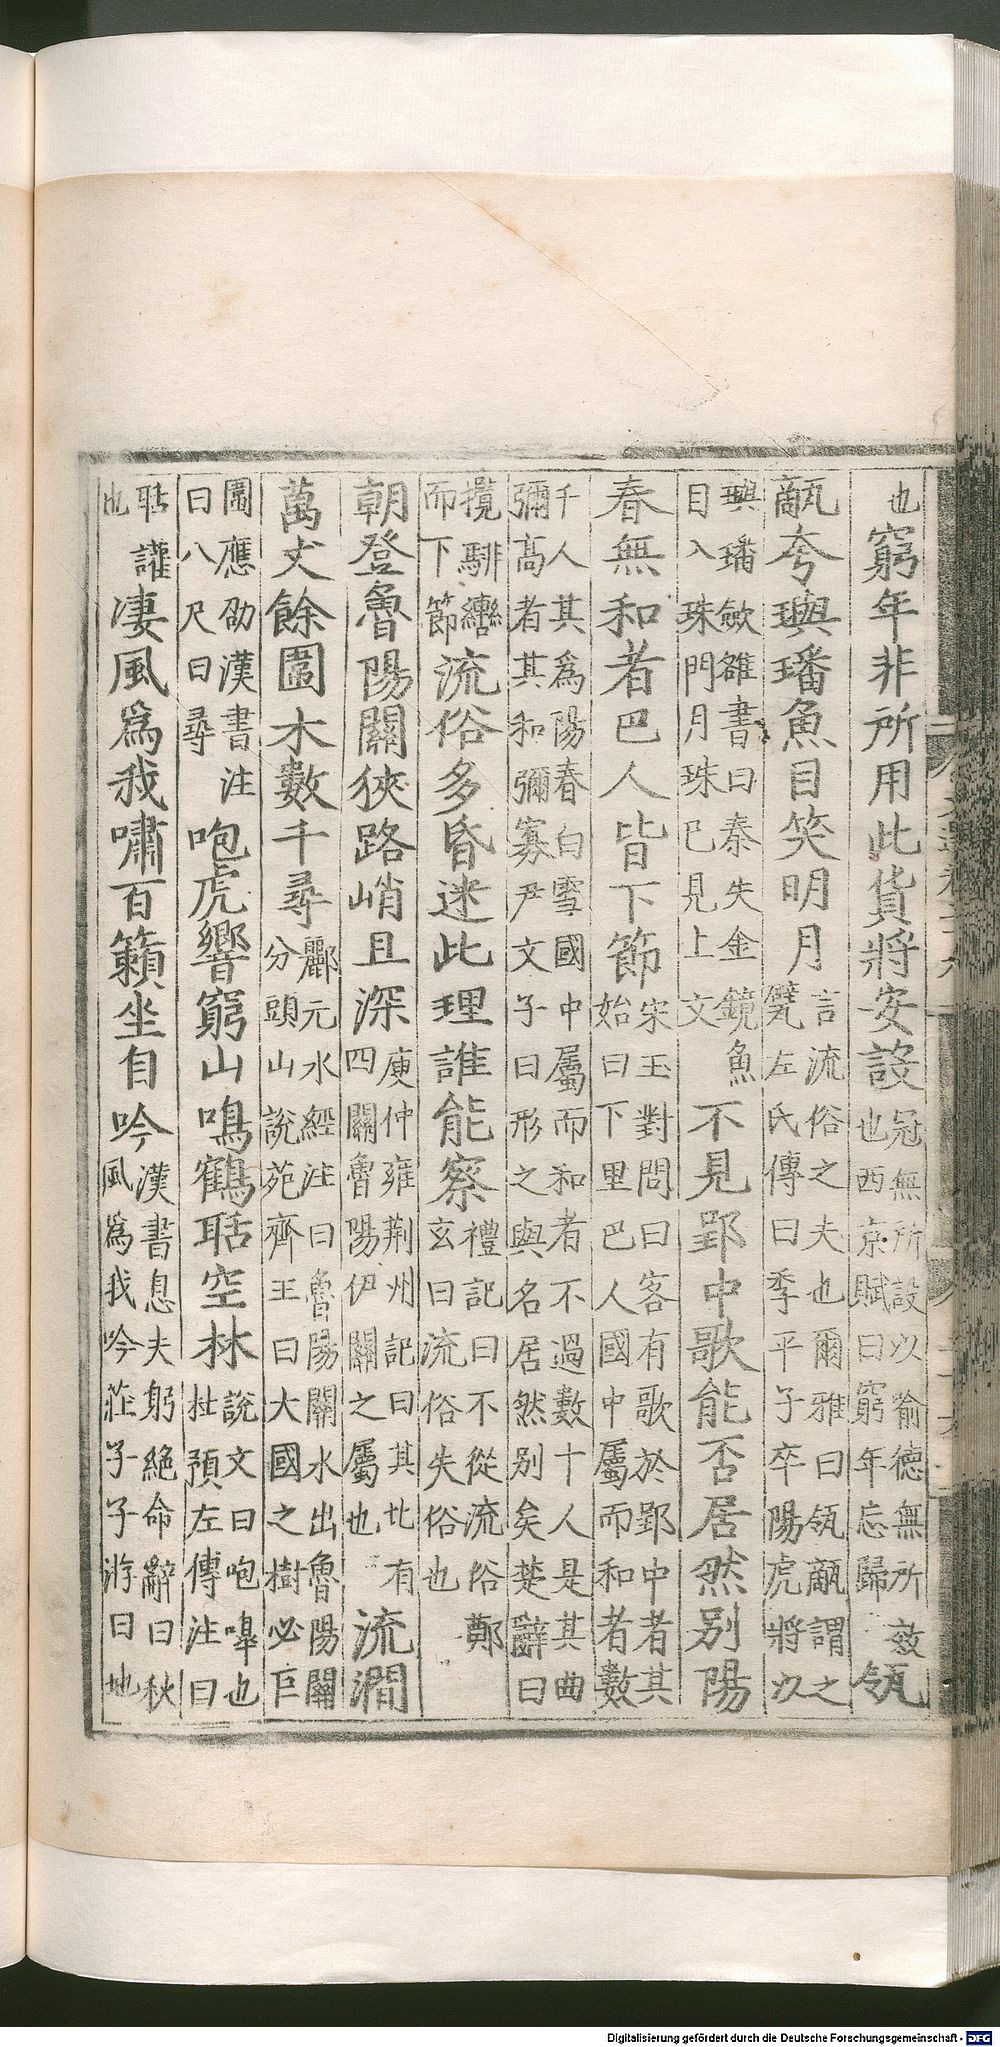 也窮年非所用此貨將安設冠無所設以喻德無所效
也西京賦曰窮年忘歸瓴
甋夸璵璠魚目笑明月言流俗之夫也爾雅曰瓴甋謂之
甓左氏傳曰季平子卒陽虎將以
璵璠歛雒書曰秦失金鏡魚
目入珠門月珠已見上文不見郢中歌能否居然别陽
春無和者巴人皆下節宋玉對問曰客有歌於郢中者其
始曰下里巴人國中屬而和者數
千人其為陽春白雪國中屬而和者不過數十人是其曲
彌高者其和彌寡尹文子曰形之與名居然别矣楚辭曰
攬騑轡
而下節流俗多昏迷此理誰能察禮記曰不從流俗鄭
玄曰流俗失俗也
朝登魯陽關狹路峭且深庾仲雍荆州記曰其北有
四關魯陽伊關之屬也流澗
萬丈餘圍木數千尋酈元水經注曰魯陽關水出魯陽關
分頭山說苑齊王曰大國之樹必巨
圍應劭漢書注
曰八尺曰尋咆虎響窮山鳴鶴聒空林說文曰咆嘷也
杜預左傳注曰
聒讙
也淒風爲我嘯百籟坐自吟漢書息夫躬絶命辭曰秋
風爲我吟莊子子游曰地
Digitalisierung gefördert durch die Deutsche Forschungsgemeinschaft - DFG